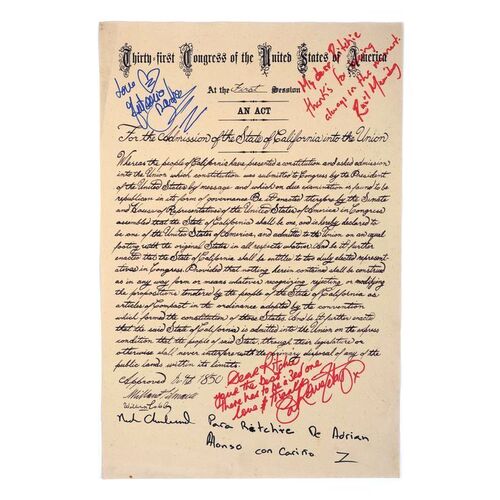 Thirty-first Congress of the United States of America
At the First Session
AN ACT
For the Admission of the State of California into the Union
Whereas the people of California have presented a constitution and asked admission
into the Union which constitution was submitted to Congress by the President
of the United States by message and which on due examination is found to be
republican in its form of governance Be it enacted therefore by the Senate
and House of Representatives of the United States of America in Congress
assembled that the State of California shall be one, and is hereby declared to
be one of the United States of America, and admitted to the Union on an equal
footing with the original States in all respects whatever And be it further
enacted that the State of California shall be entitled to two duly elected represent
atives in Congress. Provided that nothing herein contained shall be construed
as in any way form or means whatever recognizing rejecting or modifying
the propositions tendered by the people of the State of California as
articles of Contest in the ordinance adopted by the convention
which formed the constitution of those States. And be it further enacted
that the said State of California is admitted into the Union on the express
condition that the people of said State, through their legislature or
otherwise shall never interfere with the primary disposal of any of the
public lands within its limits.
Approved 1850
Love
Antonio
My dear Ritchie
thanks for being
always in the moment.
Dear Ritchie
You're the best.
There had to be a 3rd one
Love & thanks
Para Ritchie De Adrian
Alonso con Cariño Z